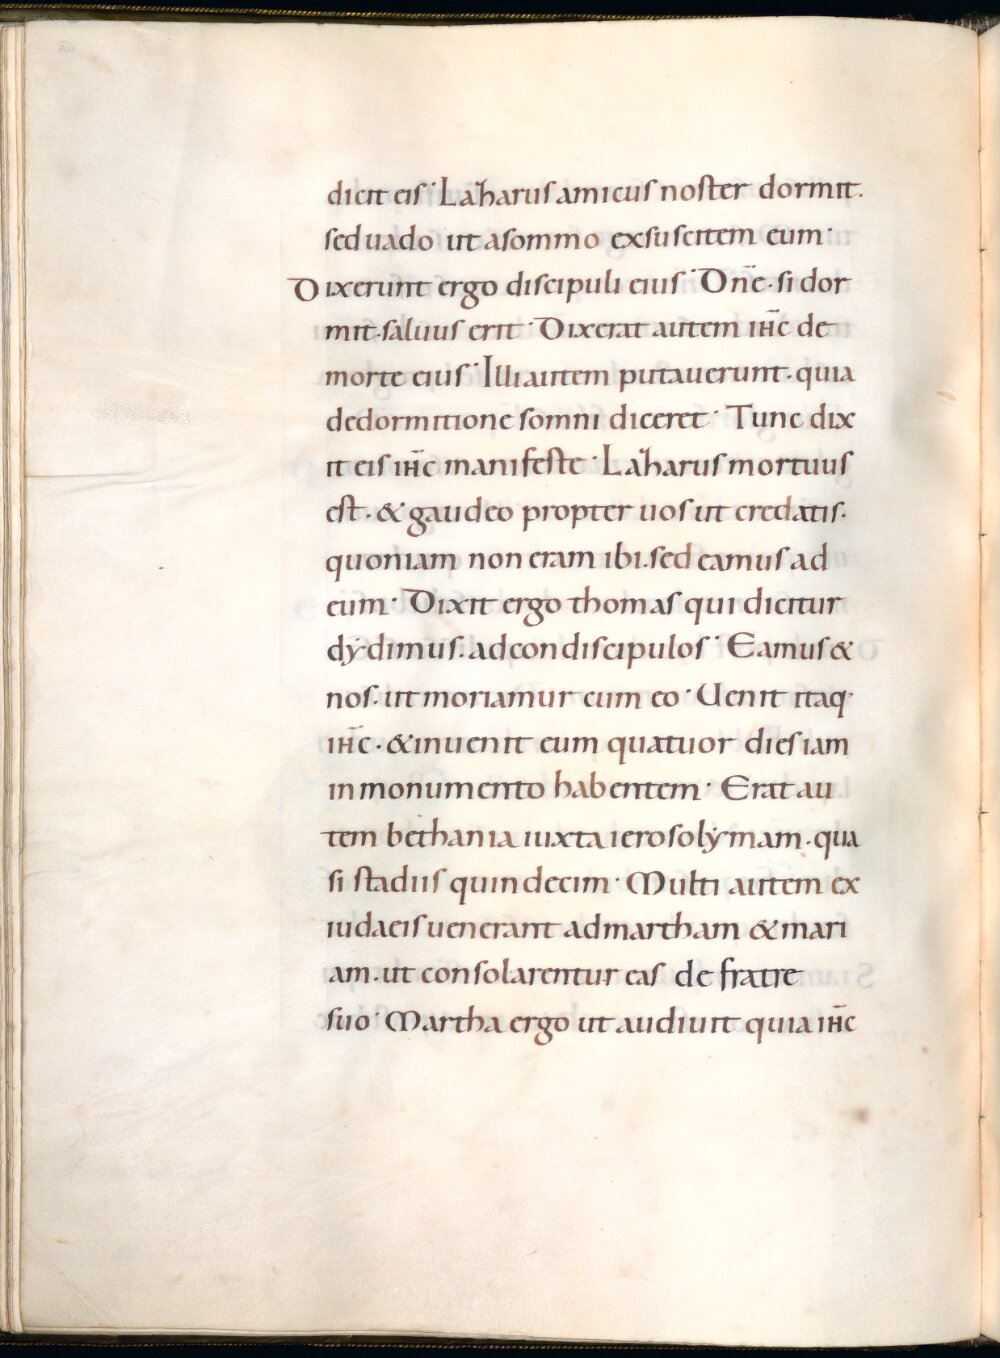 dicit eis· Lazarus amicus noster dormit.
sed uado ut asommo exsuscitem eum·
Dixerunt ergo discipuli eius· Dn̄e· si dor
mit· saluus erit· Dixerat autem ih̄c de
morte eius· Illi autem putauerunt· quia
dedormitione somni diceret· Tunc dix
it eis ih̄c manifeste· Lazarus mortuus
est· & gaudeo propter uos ut credatis·
quoniam non eram ibi· sed eamus ad
eum· Dixit ergo thomas qui dicitur
dẏdimus· ad condiscipulos· Eamus &
nos· ut moriamur cum eo· Uenit itaq·
ih̄c· & inuenit eum quatuor dies iam
in monumento habentem· Erat au
tem bethania iuxta ierosolẏmam· qua
si stadiis quindecim· Multi autem ex
iudaeis uenerant ad martham & mari
am· ut consolarentur eas de fratre
suo· Martha ergo ut audiuit quia ih̄c